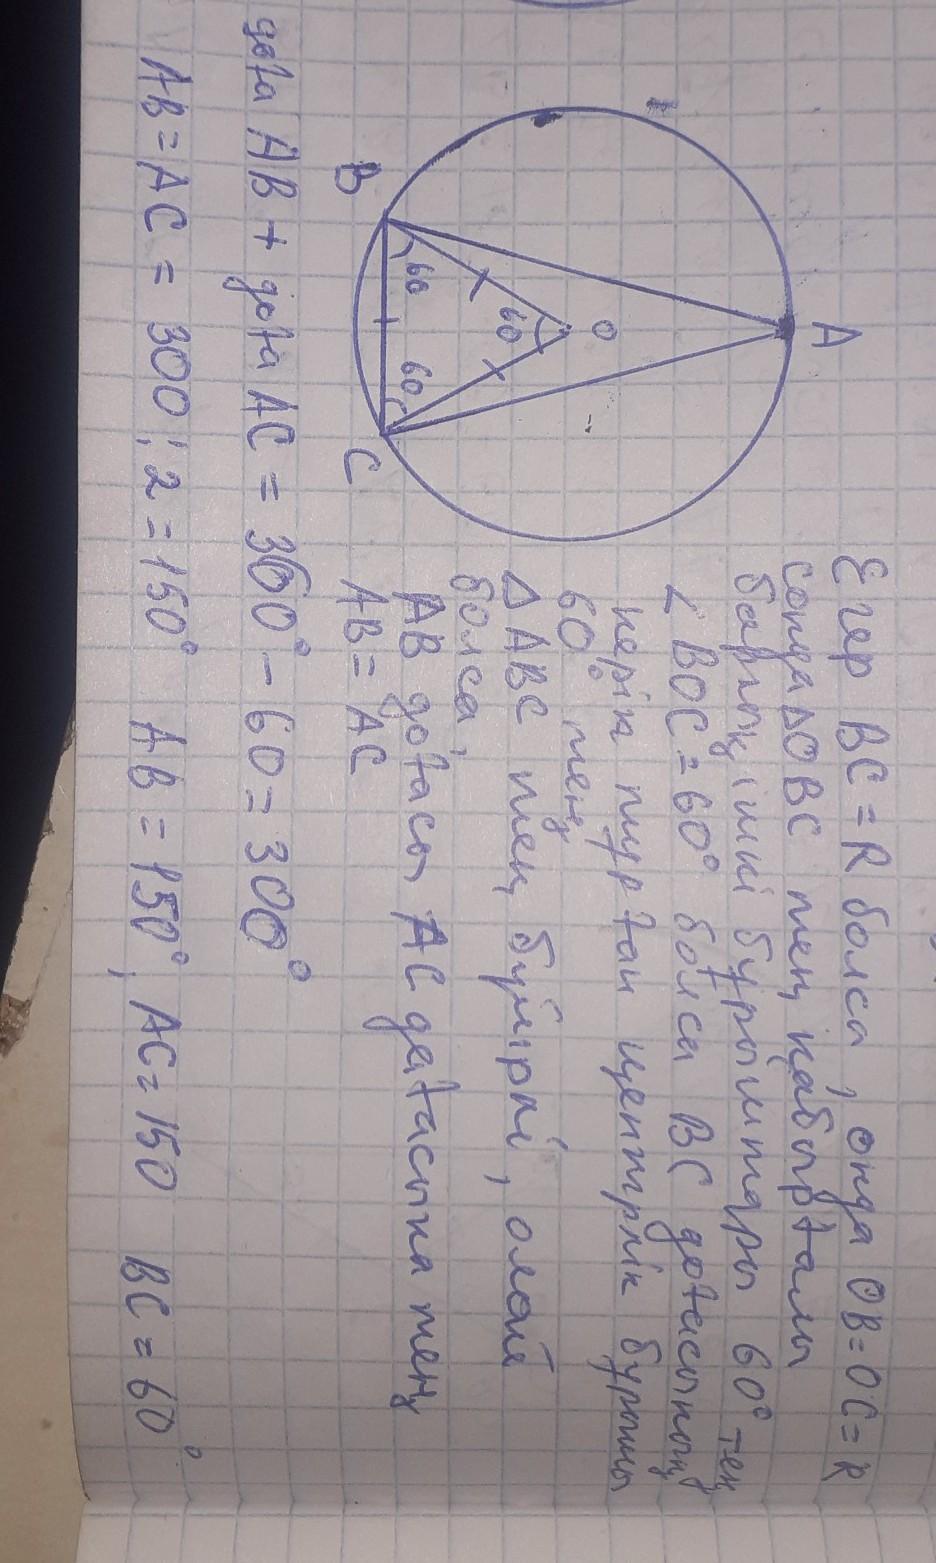 A
O
60
60
60
B
C
Егер BC = R болса, онда OB = OC = R
сонда △OBC тең қабырғалы
барлық ішкі бұрыштары 60° тең
∠ BOC = 60° болса BC доғасының
керіп тұрған центрлік бұрышы
60° тең
△ ABC тең бүйірлі, олай
болса,
AB доғасы AC доғасына тең
AB = AC
доға AB + доға AC = 360° - 60 = 300°
AB = AC = 300 : 2 = 150° AB = 150°, AC = 150 BC = 60°